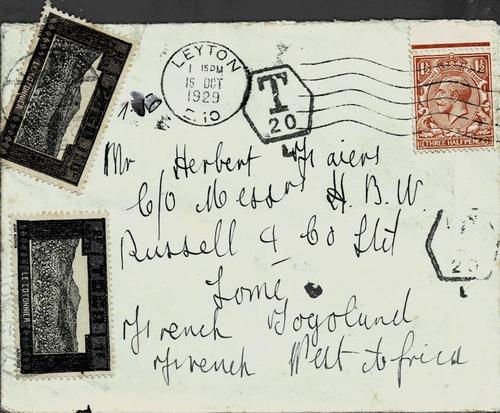 LEYTON
1 15PM
16 OCT
1929
T
20
1½ 1½
THREE HALFPENCE
LE COTONNIER
Mr Herbert
C/o Messrs H.B.W
Russell & Co Ltd
Lome
French Togoland
French West Africa
20
LE COTONNIER